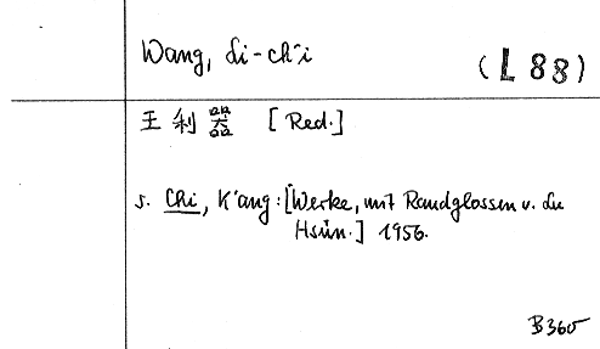 Wang, Li-ch'i
(L 88)
王利器 [Red.]
s. Chi, K'ang: [Werke, mit Randglossen v. Lu
Hsün.] 1956.
B 360